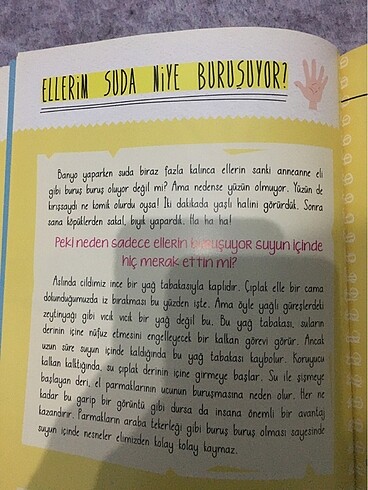 ELLERİM SUDA NİYE BURUŞUYOR?
Banyo yaparken suda biraz fazla kalınca ellerin sanki anneanne eli
gibi buruş buruş oluyor değil mi? Ama nedense yüzün olmuyor. Yüzün de
kırışsaydı ne komik olurdu oysa! İki dakikada yaşlı halini görürdük. Sonra
sana köpüklerden sakal, bıyık yapardık. Ha ha ha!
Peki neden sadece ellerin buruşuyor suyun içinde
hiç merak ettin mi?
Aslında cildimiz ince bir yağ tabakasıyla kaplıdır. Çıplak elle bir cama
dokunduğumuzda iz bırakması bu yüzden işte. Ama öyle yağlı güreşlerdeki
zeytinyağı gibi vıcık vıcık bir yağ değil bu. Bu yağ tabakası, suların
derinin içine nüfuz etmesini engelleyecek bir kalkan görevi görür. Ancak
uzun süre suyun içinde kaldığında bu yağ tabakası kaybolur. Koruyucu
kalkan kalktığında, su çıplak derinin içine girmeye başlar. Su ile şişmeye
başlayan deri, el parmaklarının ucunun buruşmasına neden olur. Her ne
kadar bu garip bir görüntü gibi dursa da insana önemli bir avantaj
kazandırır. Parmakların araba tekerleği gibi buruş buruş olması sayesinde
suyun içinde nesneler elimizden kolay kolay kaymaz.